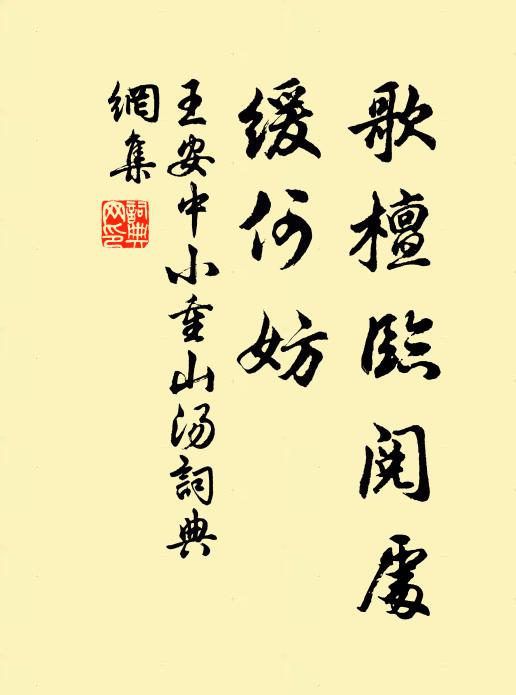 歌檀臨阕處
緩何妨
王安中小重山汤詞典
網集
詞典網印